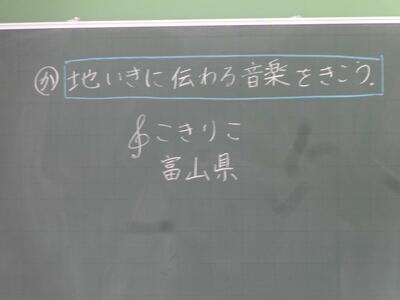 か 地いきに伝わる音楽をきこう.
𝄞こきりこ
富山県